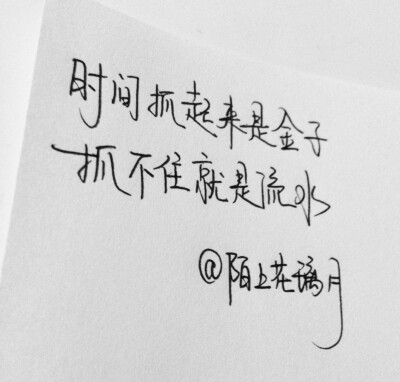 时间抓起来是金子
抓不住就是流水
@陌上花璃月